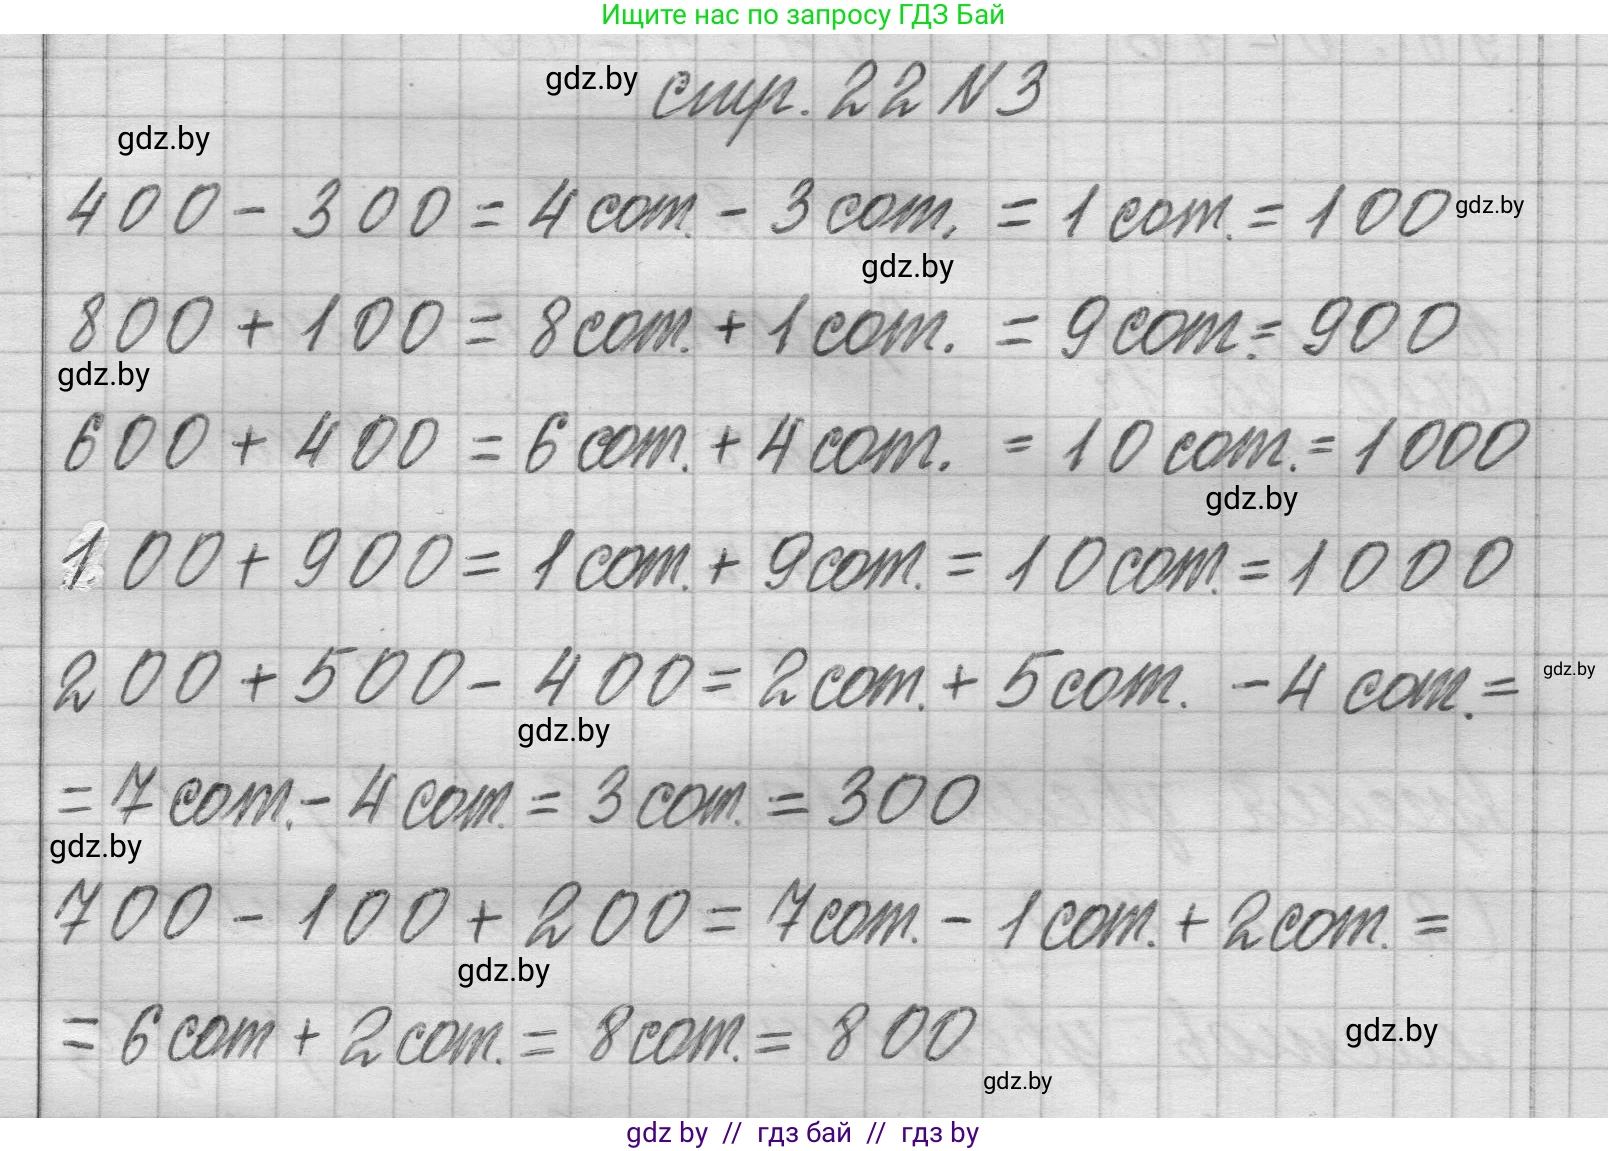 Ищите нас по запросу ГДЗ Бай
gdz.by стр. 22 N 3
gdz.by
400 - 300 = 4 сот. - 3 сот. = 1 сот. = 100 gdz.by
gdz.by
800 + 100 = 8 сот. + 1 сот. = 9 сот. = 900
gdz.by
600 + 400 = 6 сот. + 4 сот. = 10 сот. = 1000
gdz.by
100 + 900 = 1 сот. + 9 сот. = 10 сот. = 1000
200 + 500 - 400 = 2 сот. + 5 сот. - 4 сот. = gdz.by
gdz.by
= 7 сот. - 4 сот. = 3 сот. = 300
gdz.by
700 - 100 + 200 = 7 сот. - 1 сот. + 2 сот. =
gdz.by
= 6 сот + 2 сот. = 8 сот. = 800
gdz.by
gdz.by
gdz by // гдз бай // гдз by